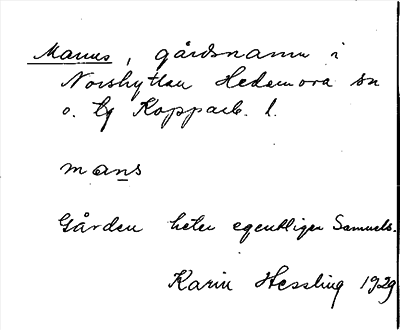 Manus, gårdsnamn i
Norshyttan Hedemora sn
o. tg Kopparb. l.
mans
Gården heter egentligen Samuels.
Karin Hessling 1929